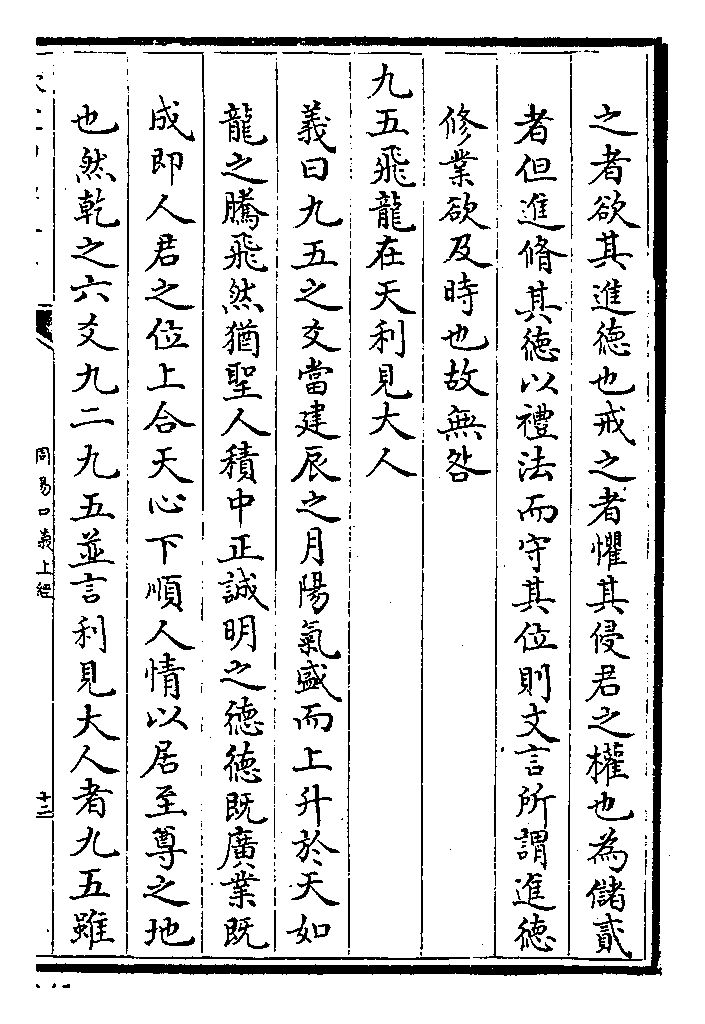 之者欲其進德也戒之者懼其侵君之權也為儲貳
者但進脩其徳以禮法而守其位則文言所謂進德
修業欲及時也故無咎
九五飛龍在天利見大人
義曰九五之爻當建辰之月陽氣盛而上升於天如
龍之騰飛然猶聖人積中正誠明之德德既廣業既
成即人君之位上合天心下順人情以居至尊之地
也然乾之六爻九二九五並言利見大人者九五雖
周易口義上經
十二